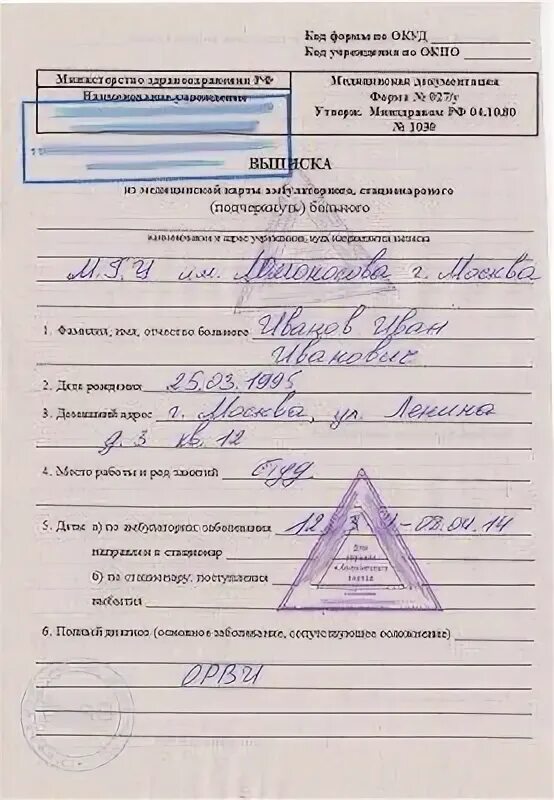 Код формы по ОКУД
Код учреждения по ОКПО
Министерство здравоохранения РФ
Наименование учреждения
Медицинская документация
Форма № 027/у
Утверж. Минздравом РФ 04.10.80
№ 1030
ВЫПИСКА
из медицинской карты амбулаторного, стационарного
(подчеркнуть) больного
наименование и адрес учреждения, куда направляется выписка
М.Г.У им. Ломоносова г. Москва
1. Фамилия, имя, отчество больного Иванов Иван
Иванович
2. Дата рождения 25.03.1995
3. Домашний адрес г. Москва, ул. Ленина
д. 3 кв. 12
4. Место работы и род занятий студ.
5. Даты: а) по амбулатории: заболевания 12. - 02.04.14
направлен в стационар
б) по стационару: поступления
выбытия
6. Полный диагноз (основное заболевание, сопутствующее осложнение)
ОРВИ